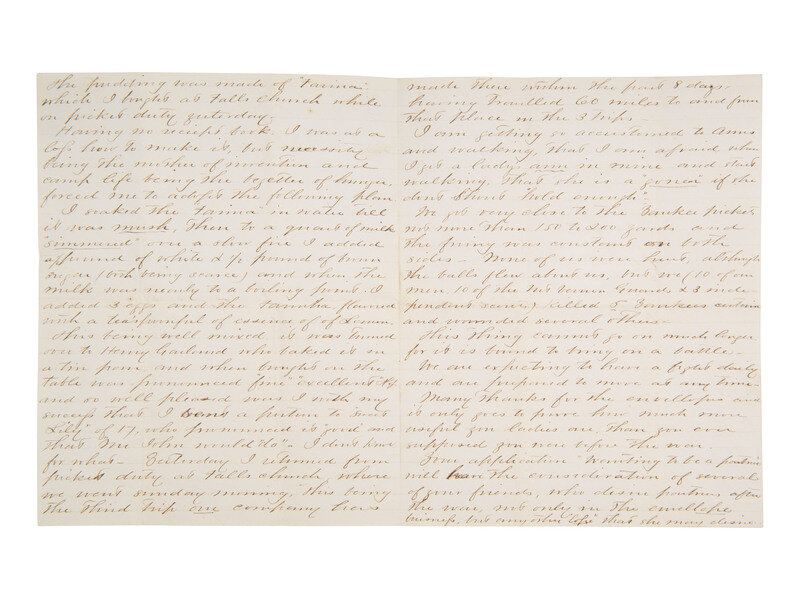 The pudding was made of "Farina"
which I bought at Falls church while
on picket duty yesterday.
Having no receipt book I was at a
loss how to make it, but necessity
being the mother of invention and
camp life being the begetter of hunger,
forced me to adopt the following plan
I soaked the Farina in water till
it was mush, then to a quart of milk
"simmered" over a slow fire I added
a pound of white & ½ pound of brown
sugar (both being scarce) and when the
milk was nearly to a boiling point I
added 3 eggs and the Farina flavored
with a teaspoonful of essence of Lemon.
This being well mixed, it was turned
over to Henry who baked it in
a tin pan, and when brought on the
table was pronounced fine "excellent" &c
and so well pleased was I with my
success that I a portion to "Aunt
Lily" of 17, who pronounced is good and
that Mr John would "do" - I dont know
for what - Yesterday I returned from
picket duty at Falls church, where
we went sunday morning, this being
the third trip our company has
made there within the past 8 days
having travelled 60 miles to and from
that place in the 3 trips.
I am getting so accustomed to Arms
and walking that I am afraid when
I get a lady's arm in mine and start
walking, that she is a "goner" if she
dont shout "hold enough"
We got very close to the Yankee pickets
not more than 150 to 200 yards and
the firing was constant on both
sides - None of us were hurt, although
the balls flew about us, but we (10 of our
men, 10 of the Guards & 3 inde-
pendent ) killed 5 Yankees certain
and wounded several others -
This thing cannot go on much longer
for it is bound to bring on a battle -
We are expecting to have a fight daily
and are prepared to move at any time -
Many thanks for the envelopes and
it only goes to prove how much more
useful you ladies are, than you ever
supposed you were before the war.
Your application "wanting to be a partner"
will have the consideration of several
of your friends, who desire partners after
the war, not only in the envelope
business, but any other "life" that she may desire